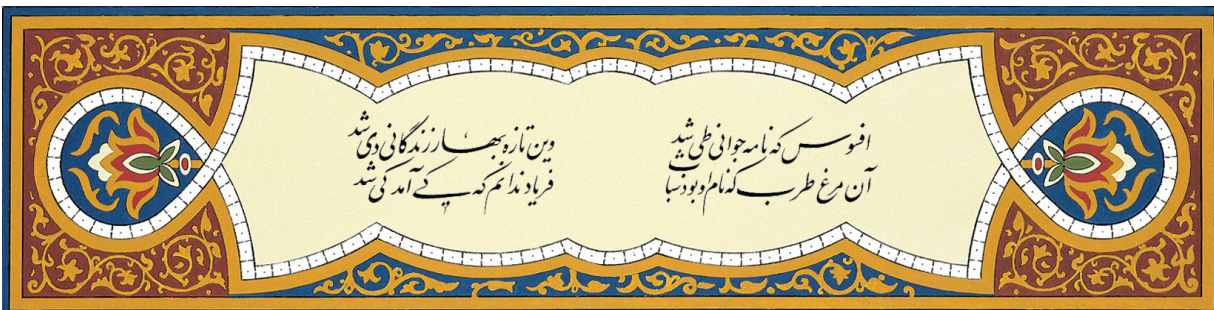 افسوس که نامه جوانی طی شد
وین تازه بهار زندگانی دی شد
آن مرغ طرب که نام او بود شباب
فریاد ندانم که کی آمد کی شد